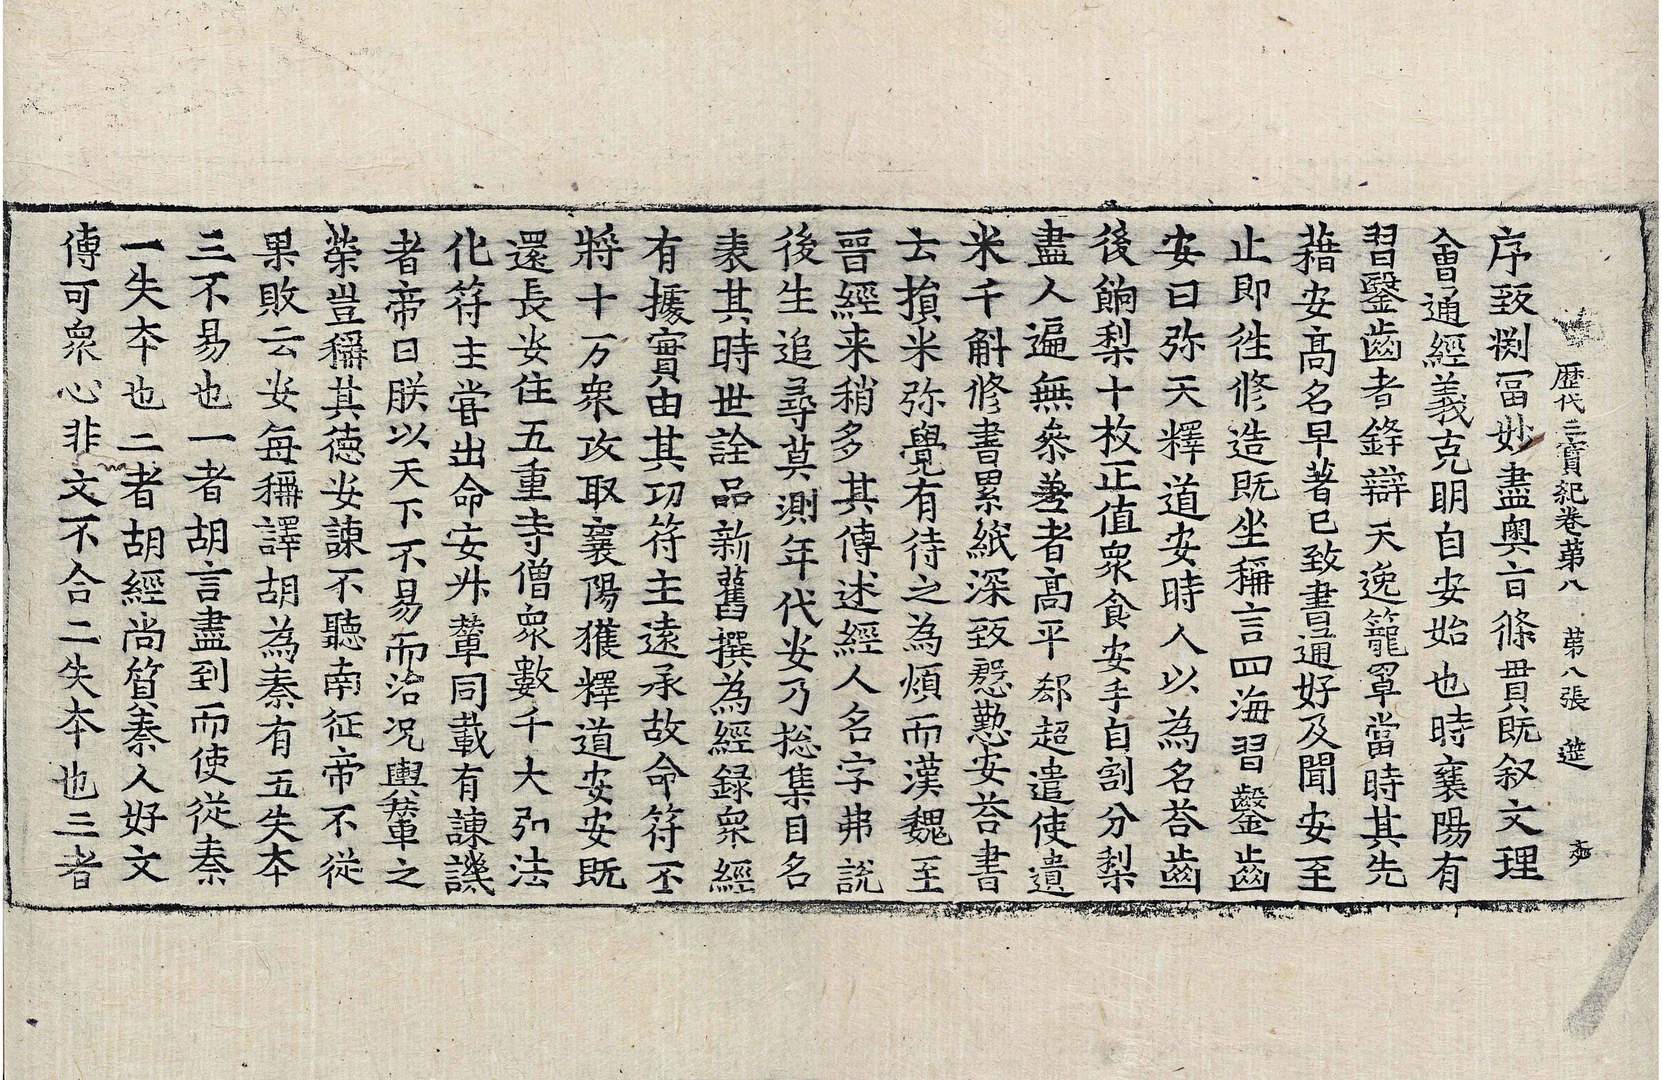 歷代三寳紀卷第八 第八張 莚
序致淵冨妙盡奧旨條貫旣叙文理
會通經義克明自安始也時襄陽有
習鑿齒者鋒辯天逸籠罩當時其先
藉安髙名早著已致書通好及聞安至
止即徃修造旣坐稱言四海習鑿齒
安曰弥天釋道安時人以為名荅齒
後餉梨十枚正值衆食安手自剖分梨
盡人遍無叅差者髙平郄超遣使遺
米千斛修書累紙深致慇懃安荅書
云損米弥覺有待之為煩而漢魏至
晉經来稍多其傳述經人名字弗說
後生追尋莫測年代安乃捴集目名
表其時世詮品新舊撰為經録衆經
有據實由其功符主遠承故命符丕
將十万衆攻取襄陽獲釋道安安旣
還長安住五重寺僧衆數千大弘法
化符主嘗出命安升輦同載有諫譏
者帝曰朕以天下不易而治况輿輦之
榮豈稱其德安諫不聽南征帝不從
果敗云安每稱譯胡為秦有五失本
三不易也一者胡言盡到而使從秦
一失本也二者胡經尚質秦人好文
傳可衆心非文不合二失本也三者